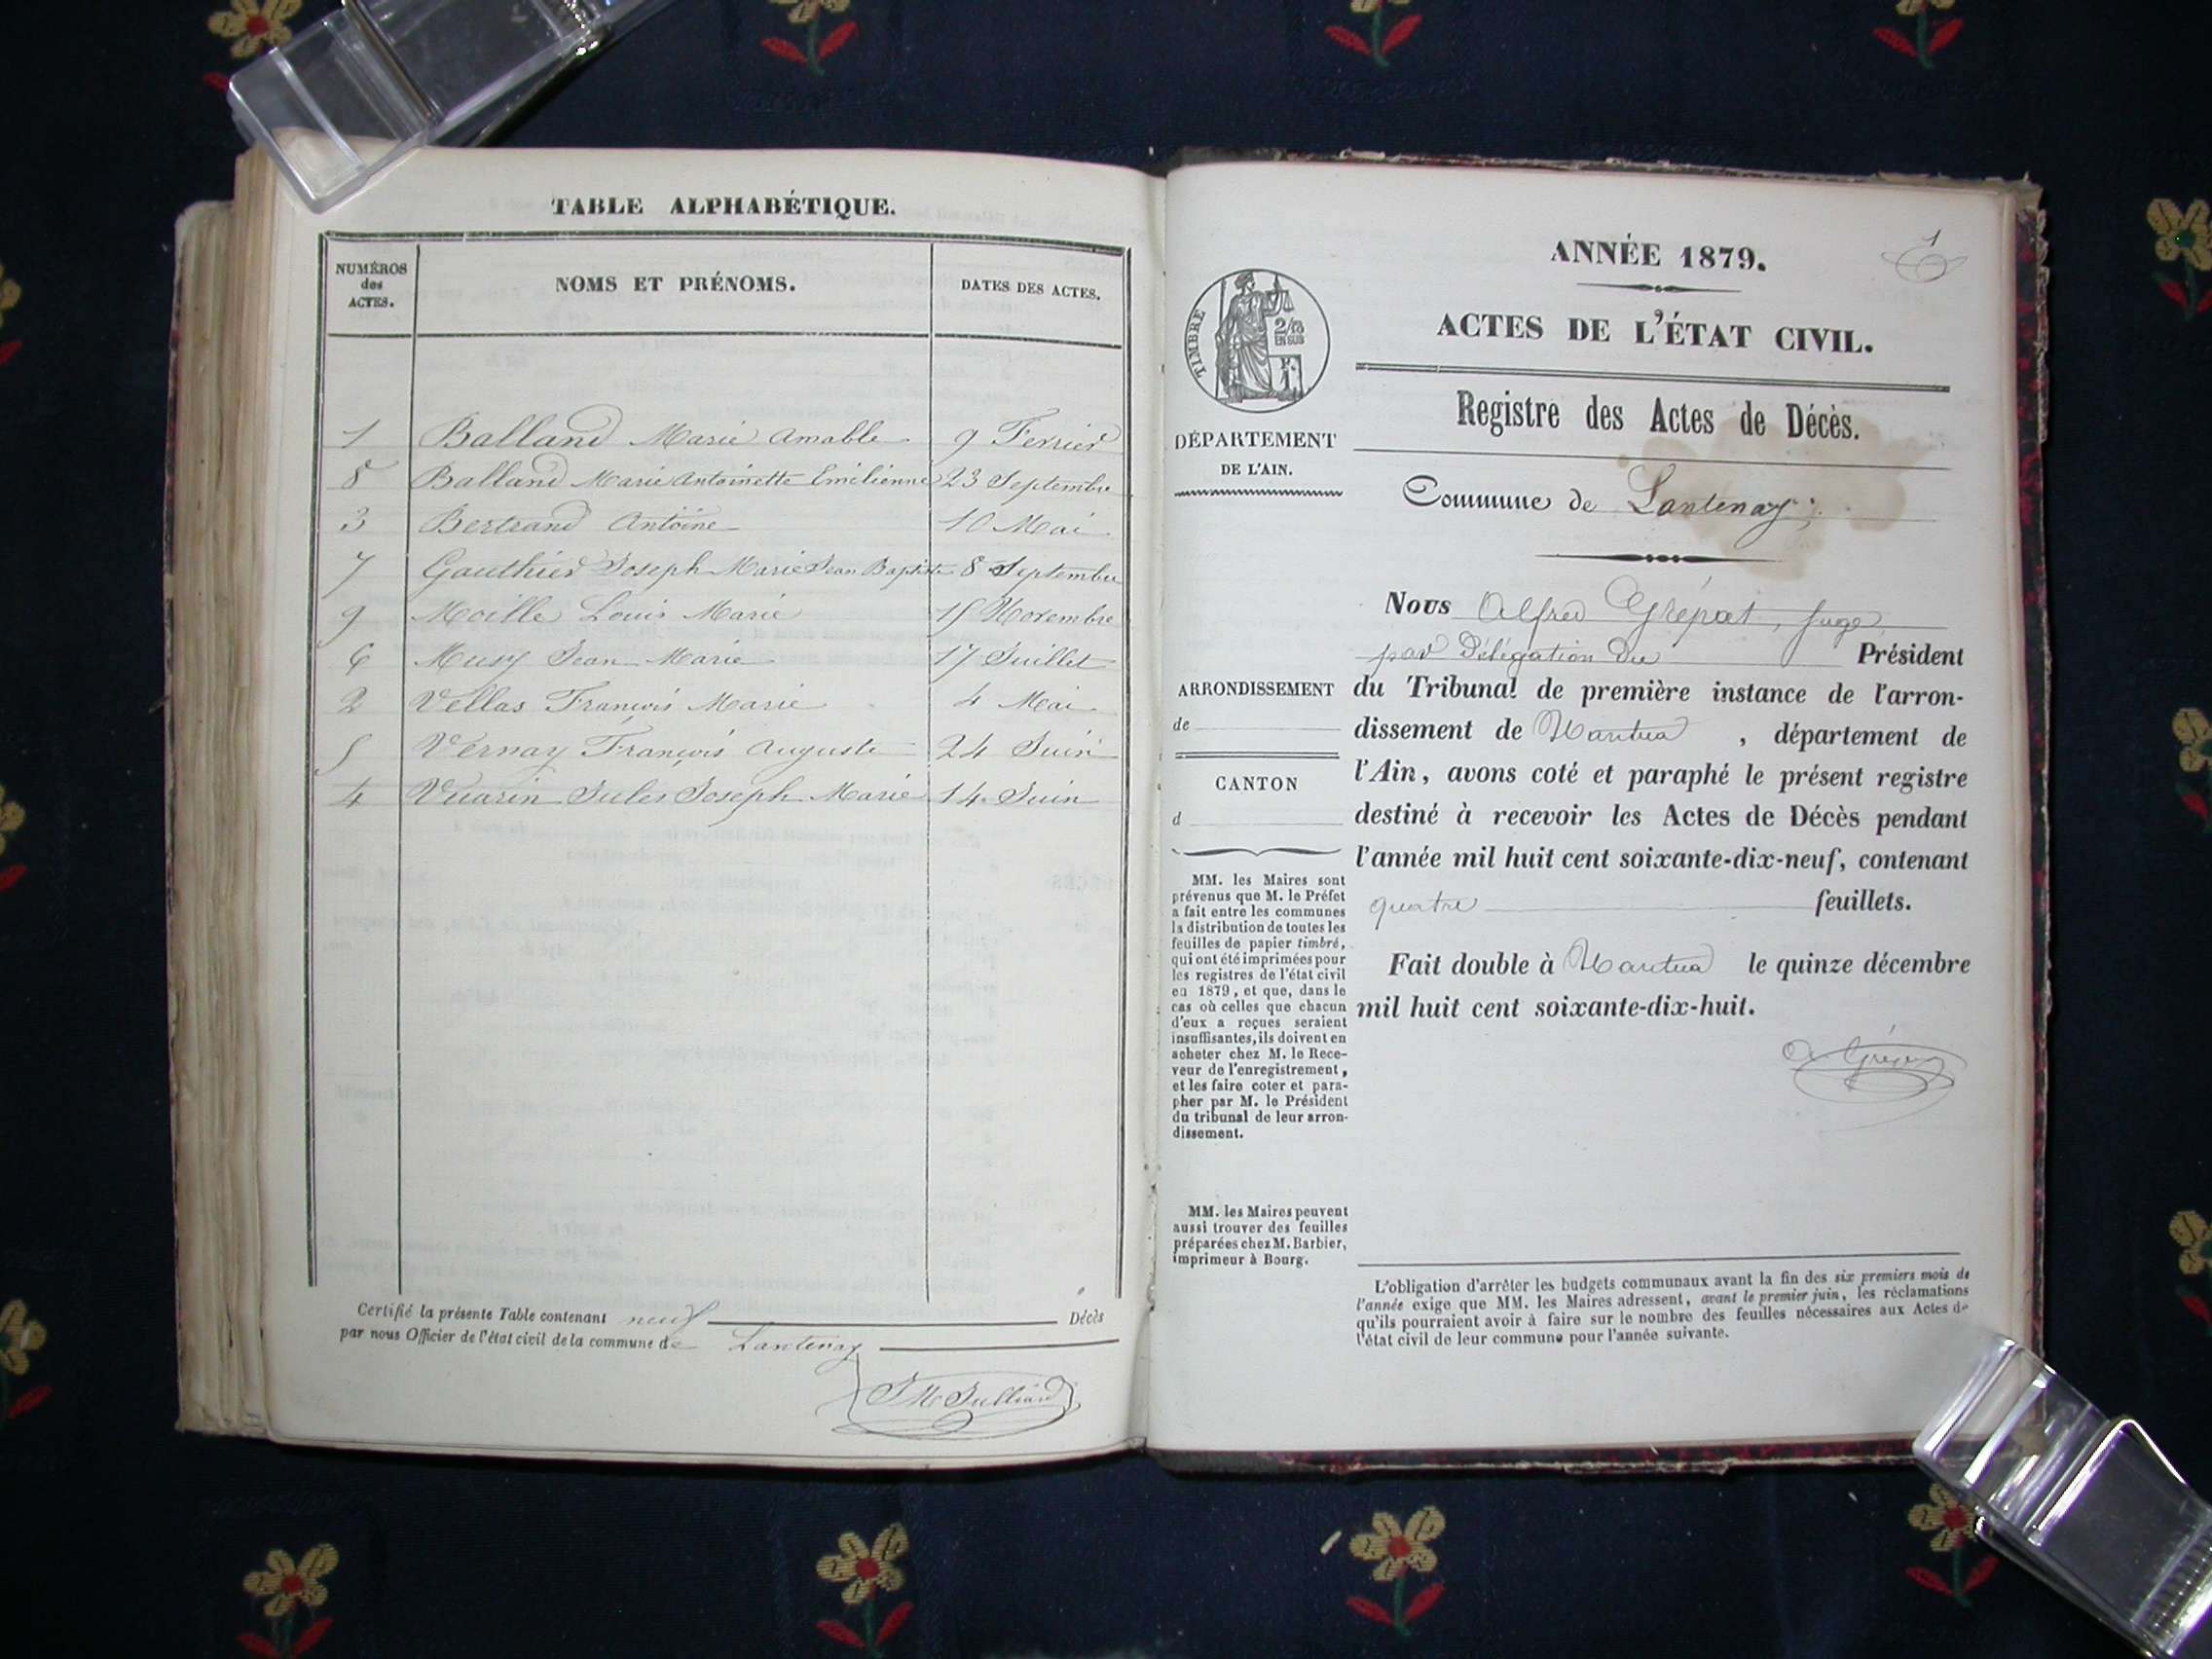 TABLE ALPHABÉTIQUE.
NUMÉROS des ACTES. NOMS ET PRÉNOMS. DATES DES ACTES.
1 Balland Marie Amable 9 Fevrier
8 Balland Marie Antoinette Emélienne 23 Septembre
3 Bertrand Antoine 10 Mai
7 Gauthier Joseph Marie Jean Baptiste 8 Septembre
9 Moille Louis Marie 15 Novembre
6 Musy Jean Marie 17 Juillet
2 Vellas François Marie 4 Mai
5 Vernay François Auguste 24 Juin
4 Vuarin Jules Joseph Marie 14 Juin
Certifié la présente Table contenant neuf Décès
par nous Officier de l'état civil de la commune de Lantenay
J M Julliard
1
ANNÉE 1879.
ACTES DE L'ÉTAT CIVIL.
Registre des Actes de Décès.
Commune de Lantenay
TIMBRE
2/10
EN SUS
DÉPARTEMENT
DE L'AIN.
ARRONDISSEMENT
de
CANTON
d
MM. les Maires sont
prévenus que M. le Préfet
a fait entre les communes
la distribution de toutes les
feuilles de papier timbré,
qui ont été imprimées pour
les registres de l'état civil
en 1879, et que, dans le
cas où celles que chacun
d'eux a reçues seraient
insuffisantes, ils doivent en
acheter chez M. le Rece-
veur de l'enregistrement,
et les faire coter et para-
pher par M. le Président
du tribunal de leur arron-
dissement.
MM. les Maires peuvent
aussi trouver des feuilles
préparées chez M. Barbier,
imprimeur à Bourg.
Nous Alfred Grépat, Juge
par Délégation du Président
du Tribunal de première instance de l'arron-
dissement de Nantua , département de
l'Ain, avons coté et paraphé le présent registre
destiné à recevoir les Actes de Décès pendant
l'année mil huit cent soixante-dix-neuf, contenant
quatre feuillets.
Fait double à Nantua le quinze décembre
mil huit cent soixante-dix-huit.
L'obligation d'arrêter les budgets communaux avant la fin des six premiers mois de
l'année exige que MM. les Maires adressent, avant le premier juin, les réclamations
qu'ils pourraient avoir à faire sur le nombre des feuilles nécessaires aux Actes de
l'état civil de leur commune pour l'année suivante.